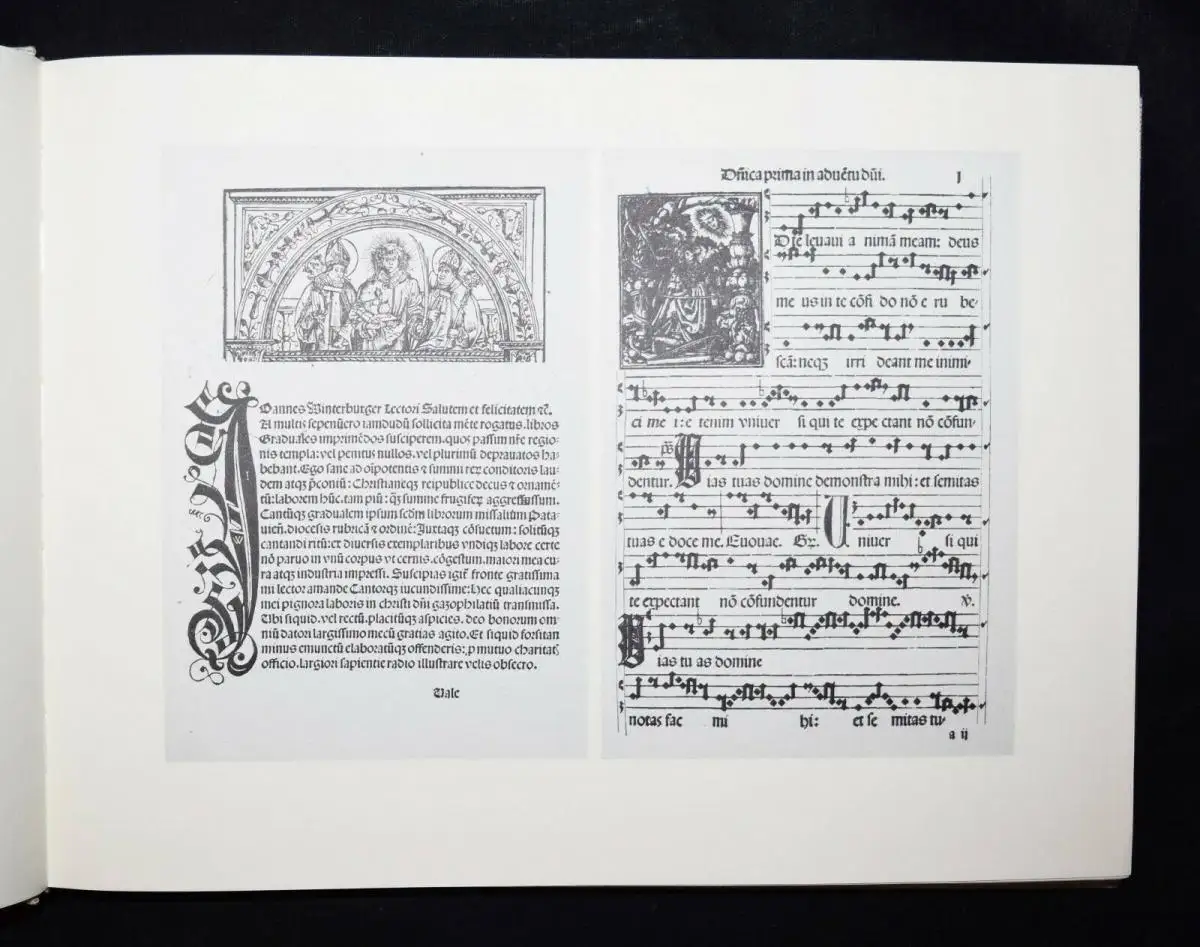 IOannes Winterburger Lectori Salutem et felicitatem ⁊c̃.
A multis sepenũero iamdudũ sollicita mẽte rogatus. libros
Graduales imprimẽdos susciperem. quos passim nr̃e regio-
nis templa: vel penitus nullos. vel plurimũ deprauatos ha-
bebant. Ego sane ad oĩpotentis ⁊ summi reꝝ conditoris lau-
dem atqꝫ p̃coniũ: Christianeqꝫ reipublice decus ⁊ ornamẽ-
tũ: laborem hũc. tam piũ: qꝫ summe frugiferꝫ aggressussum.
Cantũqꝫ gradualem ipsum scd̃m librorum missalium Pata-
uieñ. diocesis rubricã ⁊ ordinẽ: Juxtaqꝫ cõsuetum: solitũqꝫ
cantandi ritũ: et diuersis exemplaribus vndiqꝫ labore certe
nõ paruo in vnũ corpus vt cernis. cõgestum. maiori mea cu-
ra atqꝫ industria impressi. Suscipias igit̃ fronte gratissima
mi lector amande Cantorqꝫ iucundissime: hec qualiacunqꝫ
mei pignora laboris in christi dñi gazophilatiũ transmissa.
Vbi siquid. vel rectũ. placitũqꝫ aspicies. deo bonorum om-
niũ datori largissimo mecũ gratias agito. Et siquid forsitan
minus emunctũ elaboratũqꝫ offenderis: ꝑ mutuo charitat̃
officio. largiori sapientie radio illustrare velis obsecro.
Vale
Dñica prima in aduẽtu dñi. I
D te leuaui a nimã meam: deus
me us in te cõfi do nõ e ru be-
scã: neqꝫ irri deant me inimi-
ci me i: e tenim vniuer si qui te expe ctant nõ cõfun-
dentur. p̃s Vias tuas domine demonstra mihi: et semitas
tuas e doce me. Euouae. Gr. Vniuer si qui
te expectant nõ cõfundentur domine. V.
Vias tu as domine
notas fac mi hi: et se mitas tu-
a ij